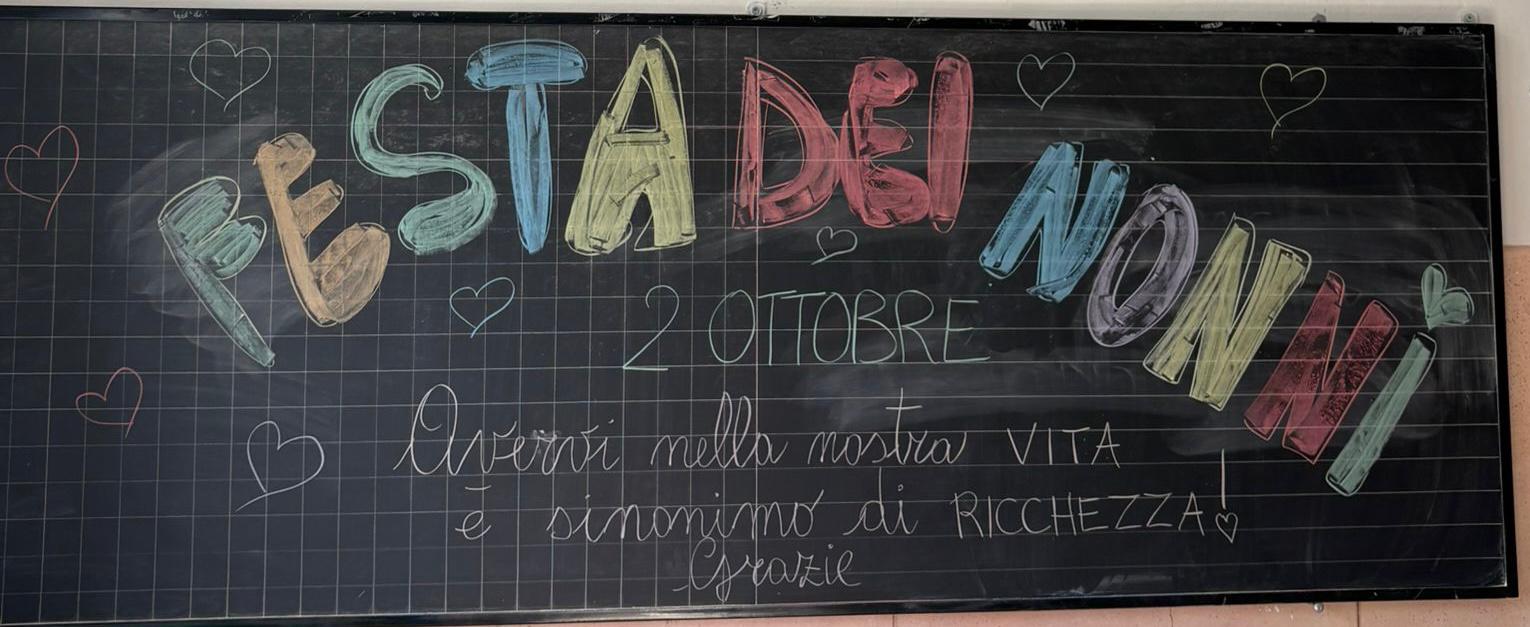 FESTA DEI NONNI
2 OTTOBRE
Avervi nella nostra VITA
è sinonimo di RICCHEZZA!
Grazie